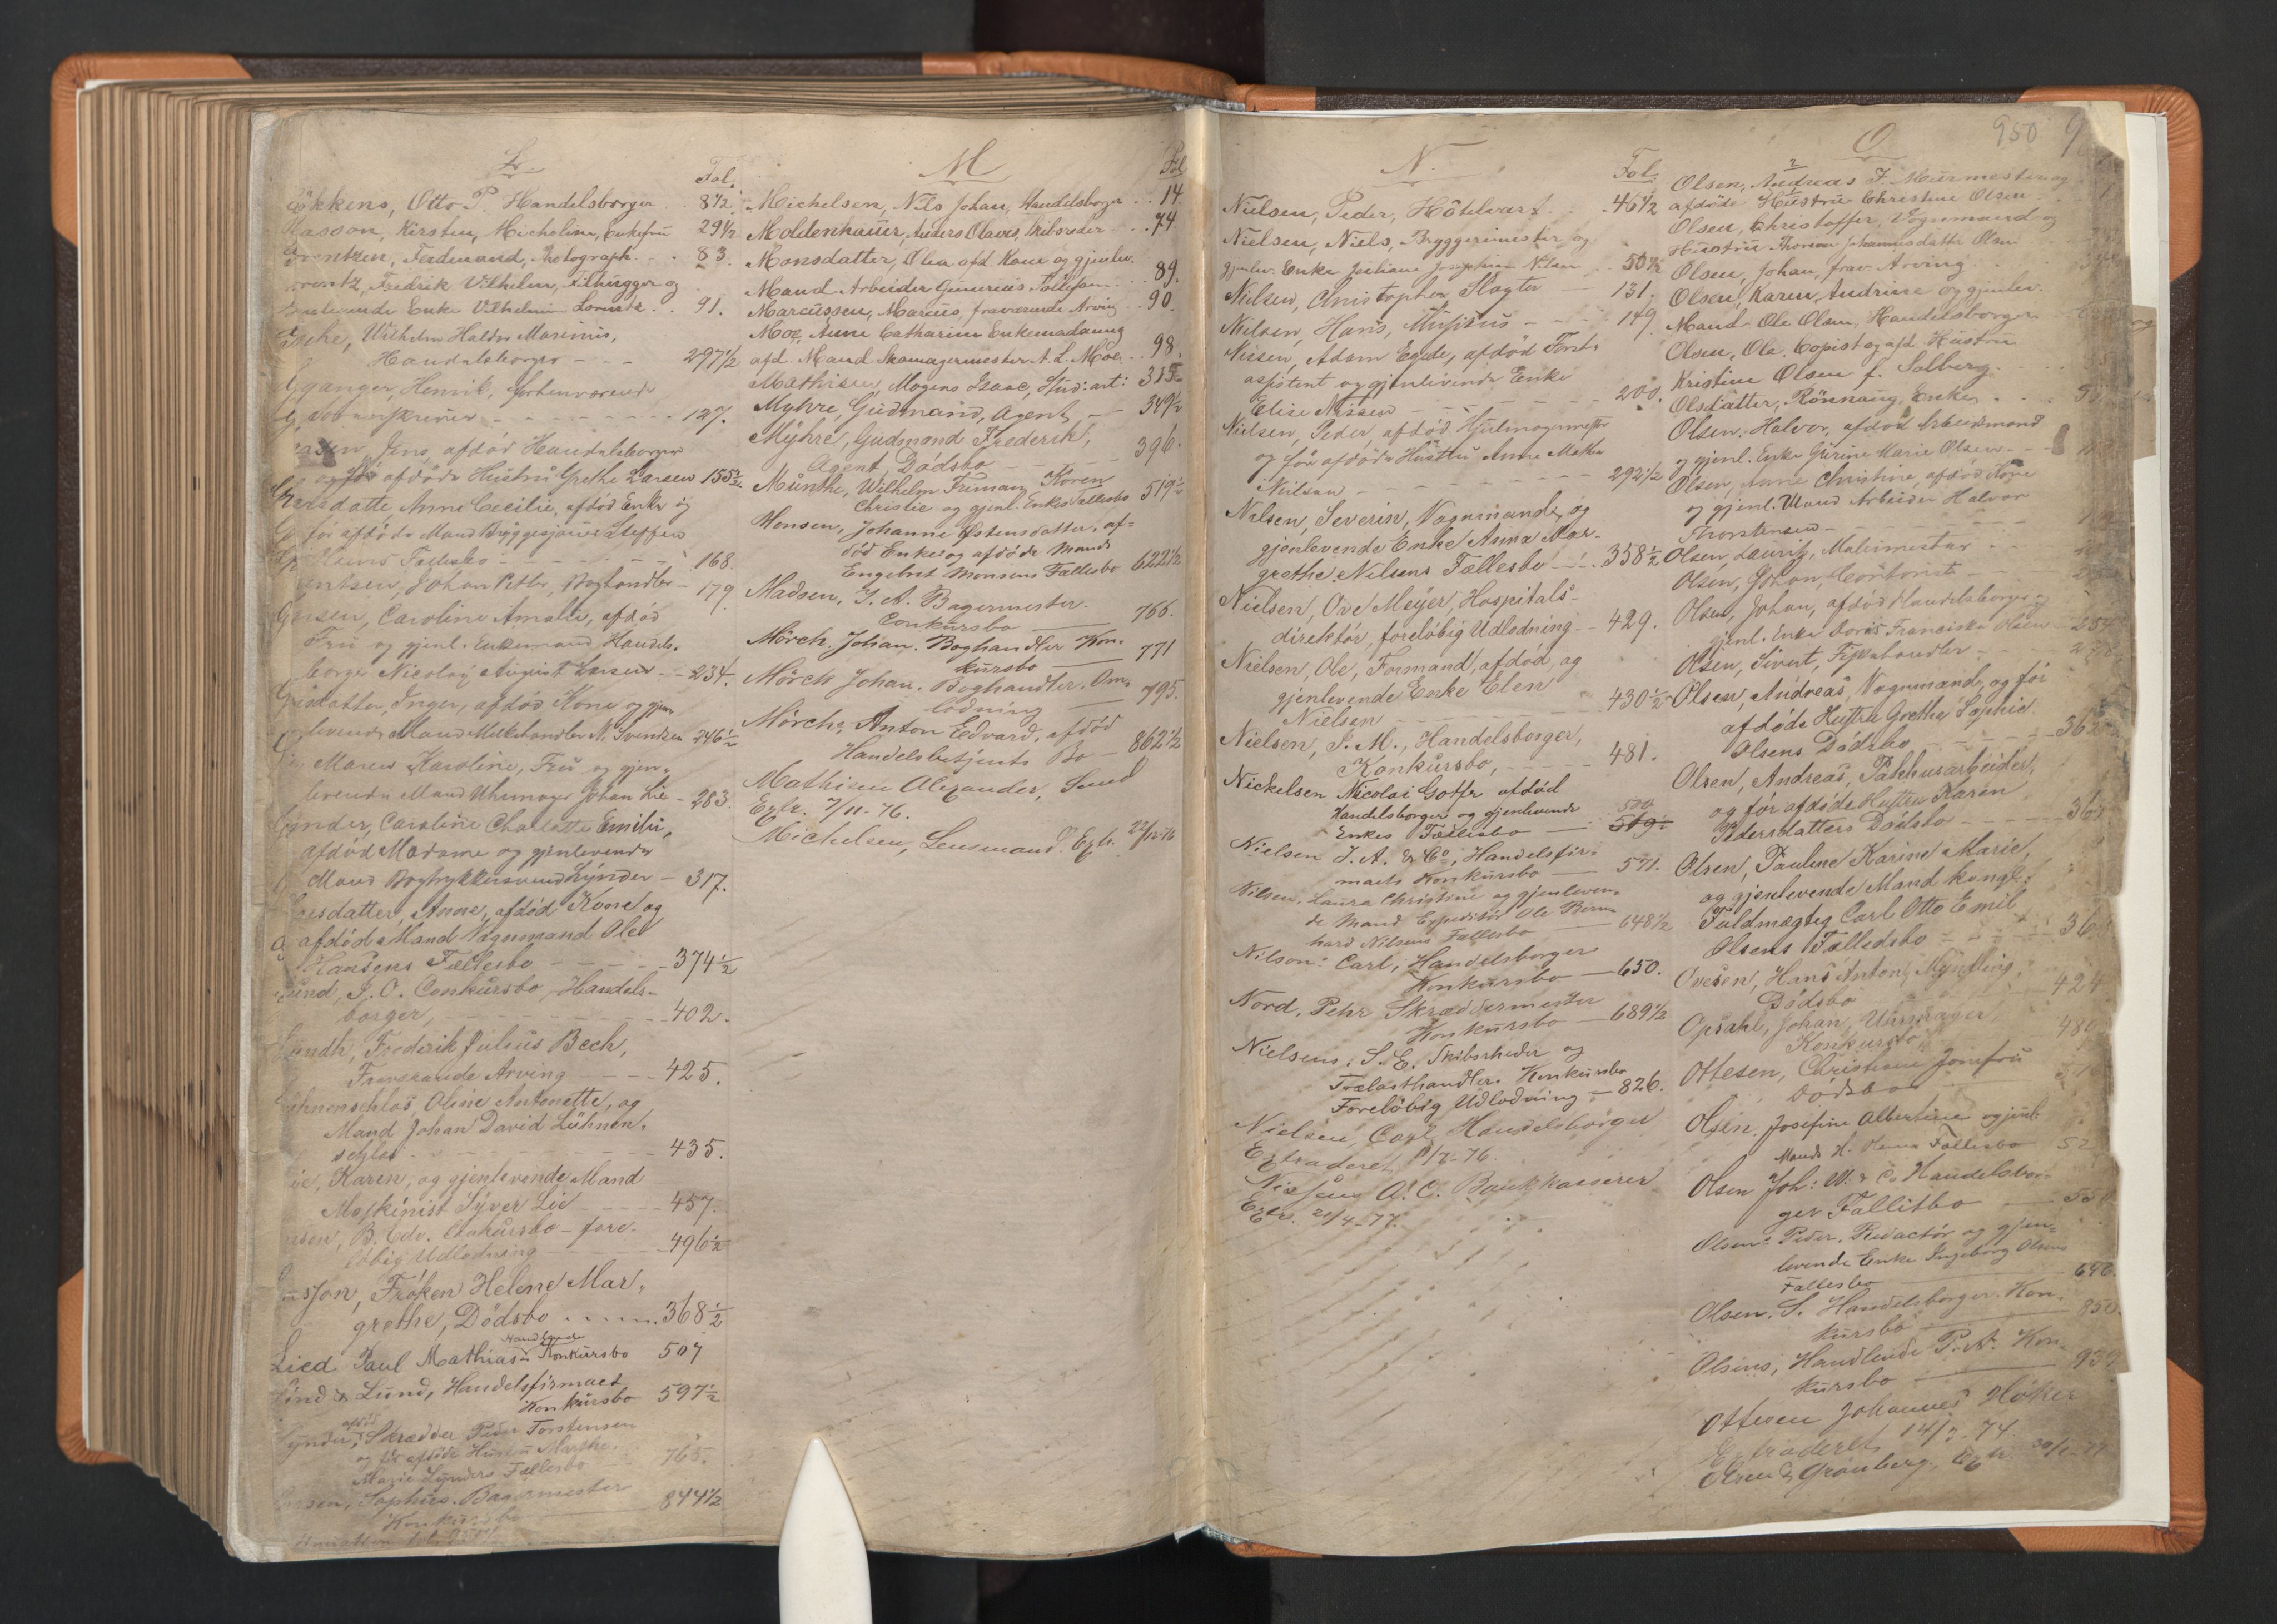 L
Fol.
Ökkens, Otto P. Handelsborger 8 1/2.
Kasson, Kirsten, Micheline, Enkefru 29 1/2
Lorentzen, Ferdinand, Photograph. 83.
Lorentz, Fredrik Vilhelm, Filhugger og
Enke Vilhelmine Lorentz 91.
Wilhelm Haldor Marinius,
Handelsborger 297 1/2
Henrik, forhenværende
127.
Jens, afdød Handelsborger
og før afdøde Hustru Grethe Larsen 155 1/2
Larsdatter Anne Cecilie, afdød Enke og
før afdøde Mand Bryggesjouer Steffen
Olsens Fællesbo 168.
Johan Petter, Boghandler 179.
Caroline Amalie, afdød
Fru og gjenl. Enkemand Handels-
borger Nicolay August Larsen 234.
Inger, afdød Kone og gjen-
levende Mand Melkehandler N. Svendsen 246 1/2
Maren Karoline, Fru og gjen-
levende Mand Uhrmager Johan Lie 283.
Lynder, Caroline Charlotte Emilie,
afdød Madame og gjenlevende
Mand Bogtrykkersvend Lynder 317.
Larsdatter, Anne, afdød Kone og
afdød Mand Vognmand Ole
Hansens Fællesbo 374 1/2
Lund, J. O. Conkursbo, Handels-
borger, 402.
Lundh, Frederik Julius Bech,
Fraværende Arving 425.
Lühnenschlos, Oline Antonette, og
Mand Johan David Lühnen-
schlos 435.
Lie, Karen, og gjenlevende Mand
Maskinist Syver Lie 457.
B. Edv. Conkursbo - fore-
løbig Udlodning 496 1/2
Frøken Helene Mar-
grethe, Dødsbo 368 1/2
Handlende
Lied Paul Mathias Konkursbo 507
Lind & Lund, Handelsfirmaet
Konkursbo 597 1/2
afdød
Lynder, Skrædder Peder Torstensen
og før afdøde Hustru Marthe
Marie Lynders Fællesbo 765.
Larsen, Sophus. Bagermester 844 1/2
Konkursbo
M
Fol
Michelsen, Nils Johan, Handelsborger 14.
Moldenhauer, Anders Olaus, Skibsreder 74
Monsdatter, Olea afd. Kone og gjenlev.
Mand Arbeider Gunerius Tollefsen 89.
Marcussen, Marcus, fraværende Arving 90.
Moe, Anne Catharine Enkemadame
afd. Mand Skomagermester A. L. Moe 98.
Mathisen, Mogens Isaac, Stud: art: 315
Myhre, Gudmand, Agent 349 1/2
Myhre, Gudmond Frederik,
Agent, Dødsbo 396.
Munthe, Wilhelm Friman Koren
Christie og gjenl. Enkes Fællesbo 519 1/2
Monsen, Johanne Østensdatter, af-
død Enke og afdøde Mands
Engebret Monsens Fællesbo 622 1/2
Madsen, J. A. Bagermester.
Conkursbo 766.
Mörch. Johan. Boghandler Kon-
kursbo 771
Mörch Johan. Boghandler. Om-
lodning 795.
Mörch, Anton Edvard, afdød
Handelsbetjents Bo 862 1/2
Mathisen Alexander, Smed
Extr. 7/11-76.
Michelsen, Lensmand. Extr. 22/12-76
N.
Fol.
Nielsen, Peder, Hôtelvært 46 1/2
Nielsen, Niels, Bryggerimester og
gjenlev. Enke Juliane Josephine Nilsen 50 1/2
Nielsen, Christopher, Slagter 131.
Nielsen, Hans, Musicus 149.
Nissen, Adam Egede, afdød Forst-
assistent og gjenlevende Enke
Elise Nissen 200.
Nielsen, Peder, afdød Hjulmagermester
og før afdøde Hustru Anne Mathea
Nielsen 292 1/2
Nilsen, Severin, Vognmand, og
gjenlevende Enke Anna Mar-
grethe Nilsens Fællesbo 358 1/2
Nielsen, Ove Meyer, Hospitals-
direktør, foreløbig Udlodning 429.
Nielsen, Ole, Formand, afdød, og
gjenlevende Enke Elen
Nielsen 430 1/2
Nielsen, J. M., Handelsborger,
Konkursbo, 481.
Nickelsen Nicolai Gotfr afdød
Handelsborger og gjenlevende
Enkes Fællesbo 519
Nielsen J. A. & Co, Handelsfir-
maets Konkursbo 571.
Nilsen, Laura Christine og gjenleven-
de Mand Expeditør Ole Bern-
hard Nilsens Fællesbo 648 1/2
Nilson. Carl, Handelsborger
Konkursbo 650.
Nord, Pehr Skræddermester
Konkursbo 689 1/2
Nielsens, S. E. Skibsrheder og
Trælasthandler Konkursbo
Foreløbig Udlodning 826.
Nielsen, Carl Handelsborger
Extraderet 11/7-76.
Nielsen A. C. Bankkasserer
Extr. 21/4-77.
950
O
Olsen, Andreas F. Murmester og
afdøde Hustru Christine Olsen
Olsen, Christoffer, Vognmand og
Hustru Thorine Johannesdatter Olsen
Olsen, Johan, frav. Arving
Olsen, Karen Andrine og gjenlev.
Mand Ole Olsen, Handelsborger
Olsen, Ole, Copist og afd. Hustru
Kristine Olsen f. Solberg.
Olsdatter, Rönnaug, Enke
Olsen, Halvor, afdød Arbeidsmand
og gjenl. Enke Gurine Karie Olsen
Olsen, Anne Christine, afdød Kone
og gjenl. Mand Arbeider Halvor
Thorstensen
Olsen, Lauritz, Malermester
Olsen, Johan, Contorist
Olsen, Johan, afdød Handelsborger og
gjenl. Enke Doris Franciska Olsen 254
Olsen, Sivert, Fiskehandler
Olsen, Andreas, Vognmand, og før
afdøde Hustru Grethe Sophie
Olsens Dødsbo
Olsen, Andreas, Pakhusarbeider,
og før afdøde Hustru Karen
Pedersdatters Dødsbo
Olsen, Pauline Karine Marie,
og gjenlevende Mand kongl.
Fuldmægtig Carl Otto Emil
Olsens Fællesbo
Ovesen, Hans Anton, Myndling,
Dødsbo 424
Opsahl, Johan, Uhrmager,
Konkursbo
Ottesen, Christiane Jomfru
Dødsbo
Olsen. Josefine Albertine og gjenl.
Mands H. Fællesbo
Olsen Joh: W. & Co Handelsbor-
ger Fallitbo
Olsen. Peder. Redactør og gjen-
levende Enke Ingeborg Olsens
Fællesbo 696.
Olsen. S. Handelsborger. Kon-
kursbo 850.
Olsens, Handlende P. A. Kon-
kursbo 939
Ottesen Johannes Høker
Extraderet 14/2-74
Olsen & Grønberg. Extr.